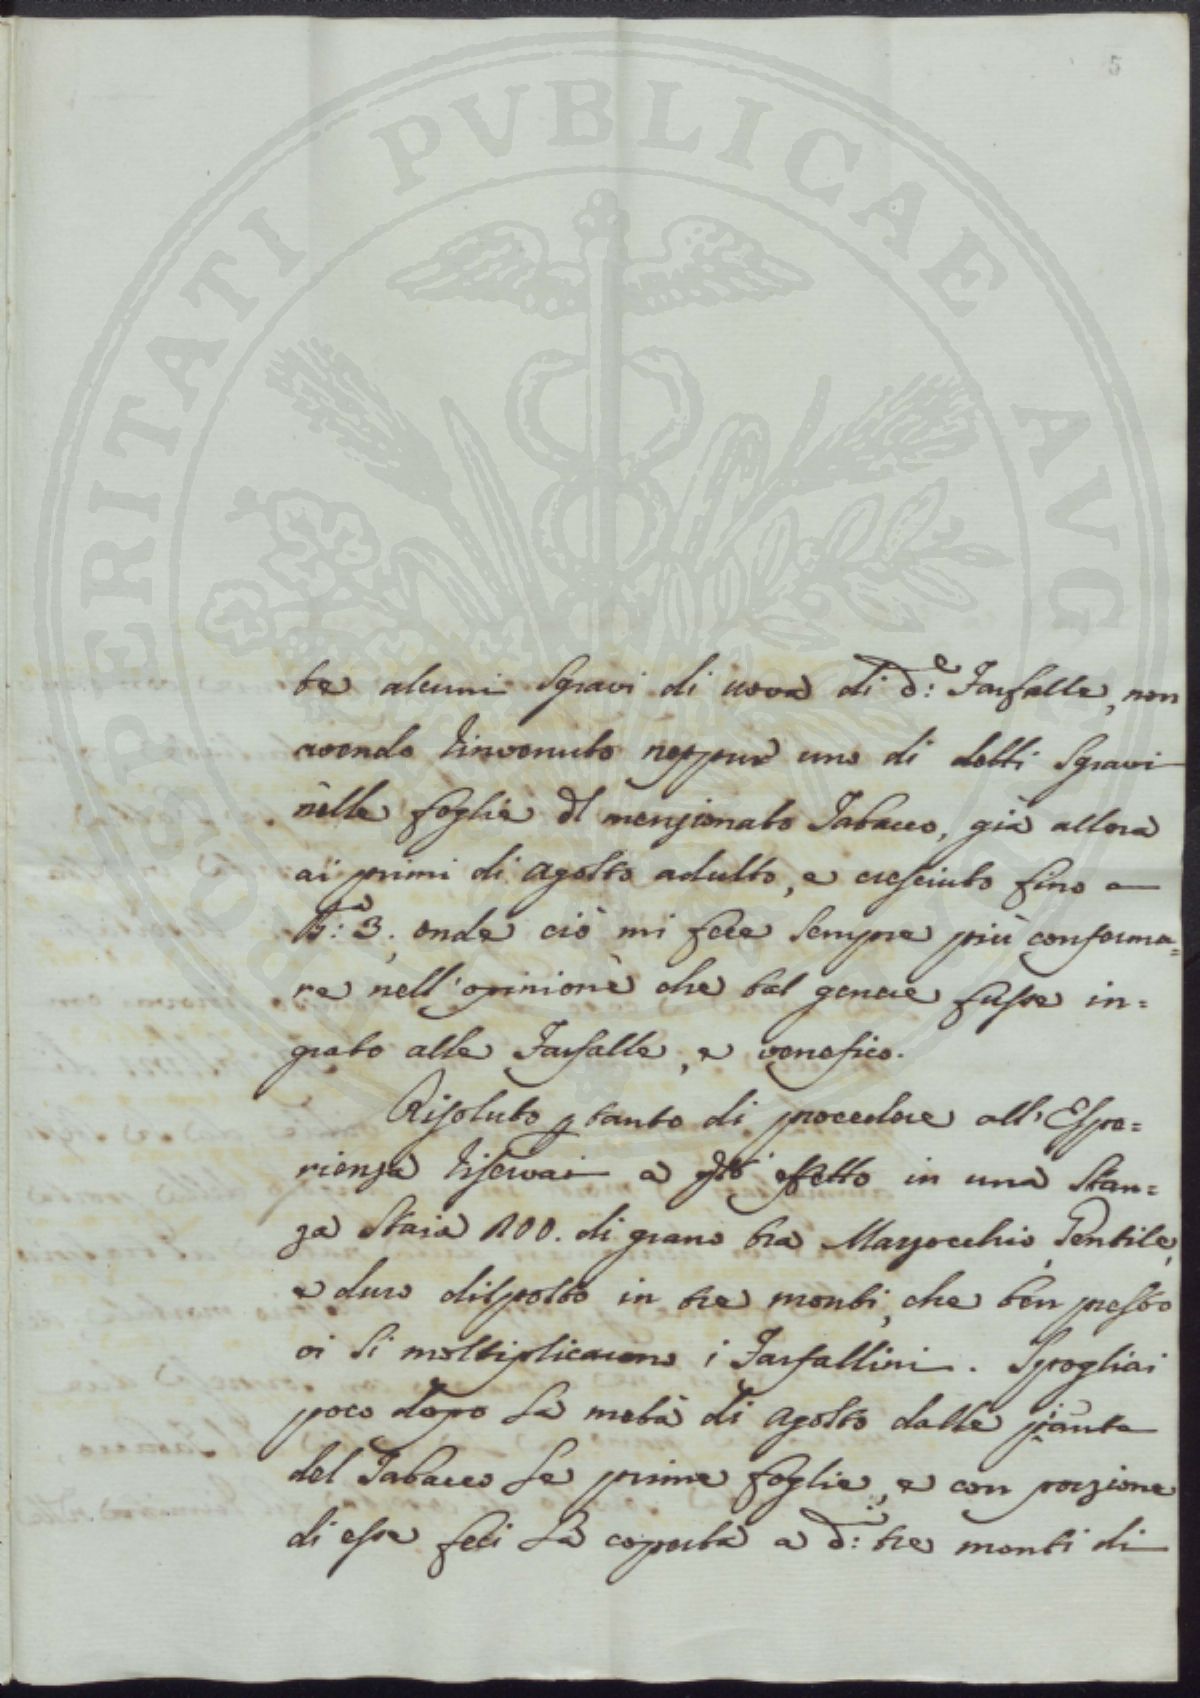 5
PROSPERITATI PVBLICAE AVGENDAE
te alcuni sgravi di uova di d:e Farfalle, non
avendo rinvenuto neppur uno di detti sgravi
nelle foglie del menzionato Tabacco, già allora
ai primi di Agosto adulto, e cresciuto fino a
B:a 3, onde ciò mi fece sempre più conferma=
re nell'opinione che tal genere fusse in=
grato alle Farfalle, e venefico.
Risoluto p tanto di procedere all'Espe=
rienza riservai a q.sto effetto in una Stan=
za Staia 100. di grano tra Mazzocchio, Gentile,
e duro disposto in tre monti, che ben presto
vi si moltiplicarono i Farfallini. Spogliai
poco dopo la metà di Agosto dalle piante
del Tabacco le prime foglie, e con porzione
di esse feci la coperta a d:i tre monti di